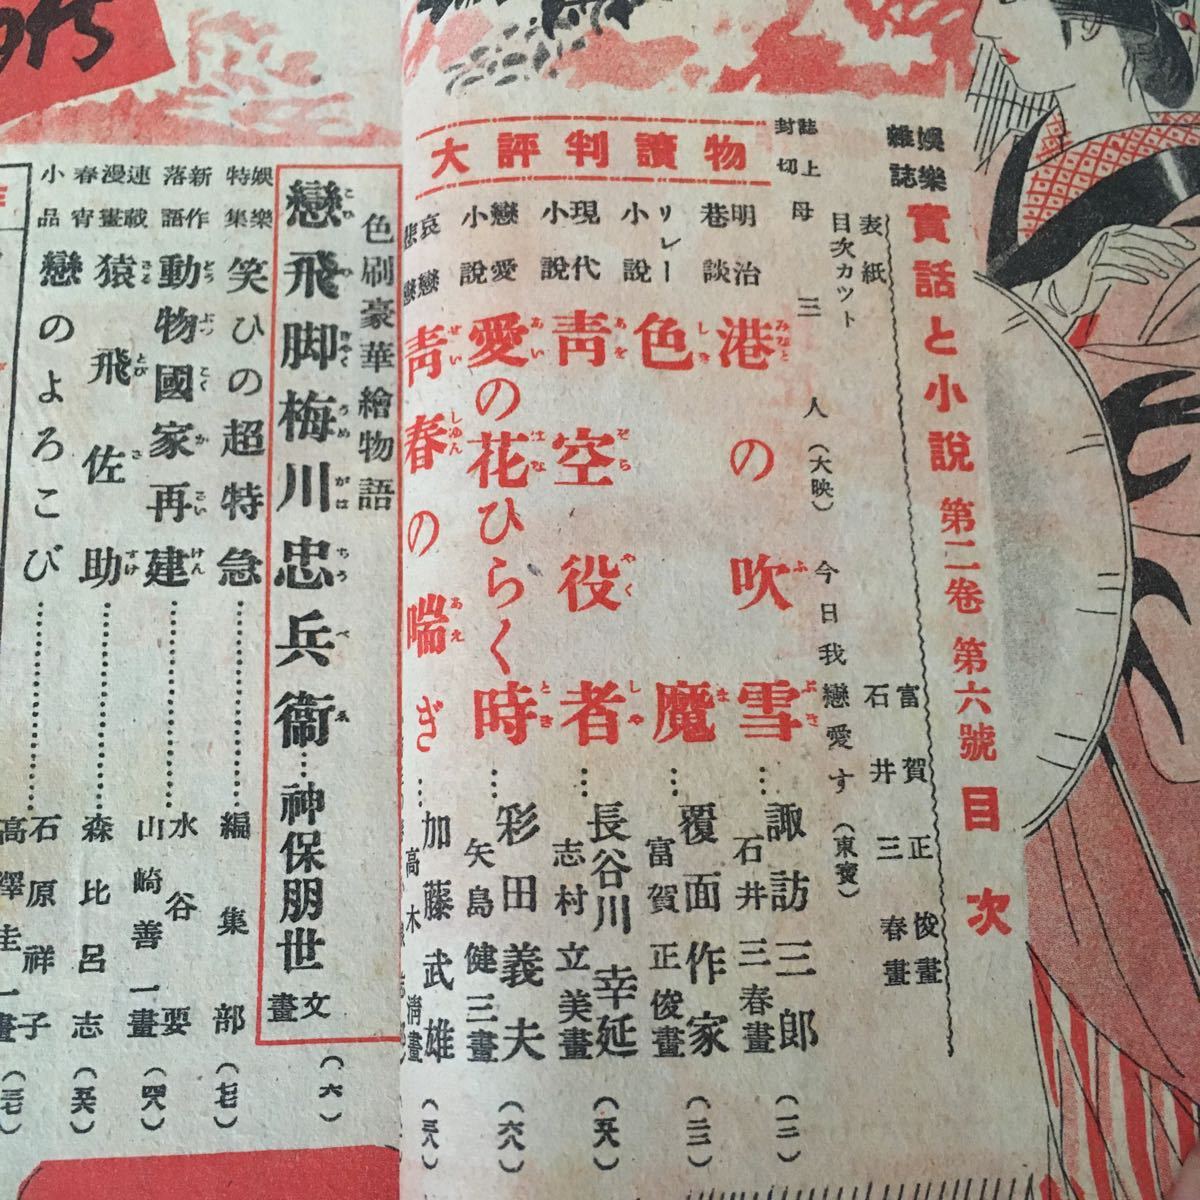 娯樂雜誌 實話と小説 第二卷 第六號 目次
表紙 富賀正俊畫
目次カット 石井三春畫
誌上封切 母三人（大映） 今日我戀愛す（東寶）
大評判讀物
明治巷談 港の吹雪 … 諏訪三郎 石井三春畫 （二）
リレー小説 色魔 … 覆面作家 富賀正俊畫 （二二）
現代小説 青空役者 … 長谷川幸延 志村立美畫 （五八）
戀愛小説 愛の花ひらく時 … 彩田義夫 矢島健三畫 （六八）
哀戀悲戀 青春の喘ぎ … 加藤武雄 高木清畫 （三八）
色刷豪華繪物語
戀飛脚梅川忠兵衞 … 神保朋世 文畫 （六）
娯樂特集 笑ひの超特急 … 編集部 （七七）
新作落語 動物國家再建 … 水谷要 山崎善一畫 （四八）
連載漫畫 猿飛佐助 … 森比呂志 （五六）
春宵小品 戀のよろこび … 石原祥子 高澤圭一畫 （三七）